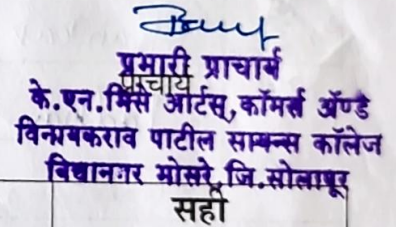 प्रभारी प्राचार्य
प्राचार्य
के.एन.भिसे आर्टस्, कॉमर्स ॲण्ड
विनायकराव पाटील सायन्स कॉलेज
विद्यानगर भोसरे, जि.सोलापूर
सही